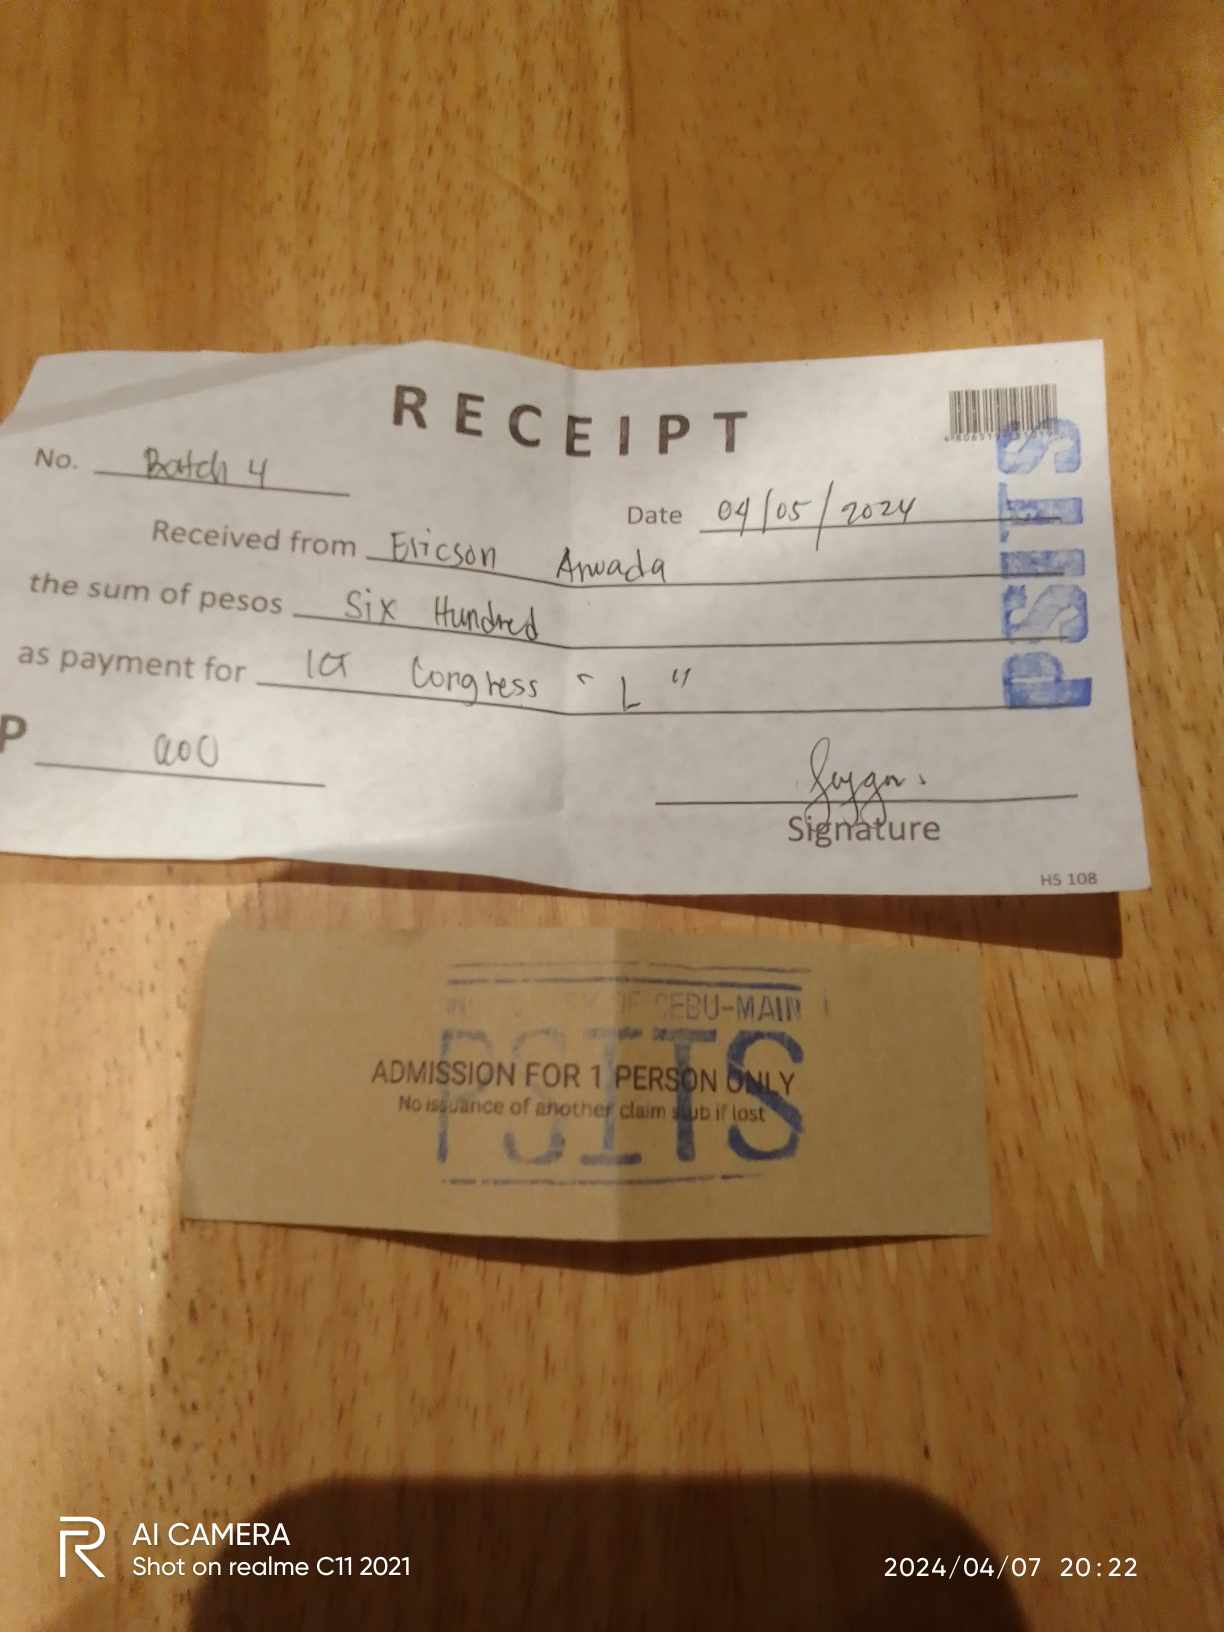 RECEIPT
No. Batch 4
Date 04/05/2024
Received from Ericson Arwada
the sum of pesos Six Hundred
as payment for Congress "L"
P
Signature
HS 108
PSITS
OF CEBU-MAIN
PSITS
ADMISSION FOR 1 PERSON ONLY
No issuance of another claim stub if lost
R AI CAMERA
Shot on realme C11 2021
2024/04/07 20:22